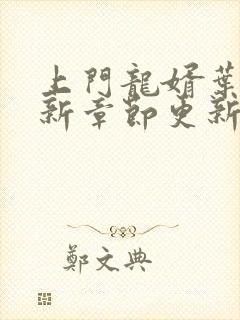 上門龍婿葉
新章節更新
鄭文典